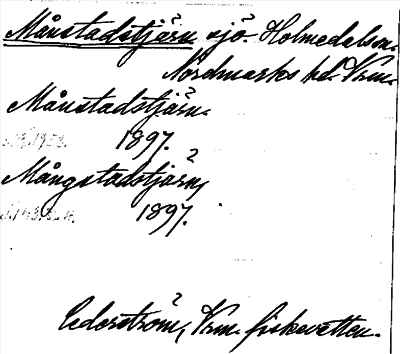 Månstadstjärn sjö. Holmedals sn.
Nordmarks hd. Vrm.
Månstadstjärn.
1897.
Mångstadstjärn,
1897.
Cederström, Vrm. fiskevatten.